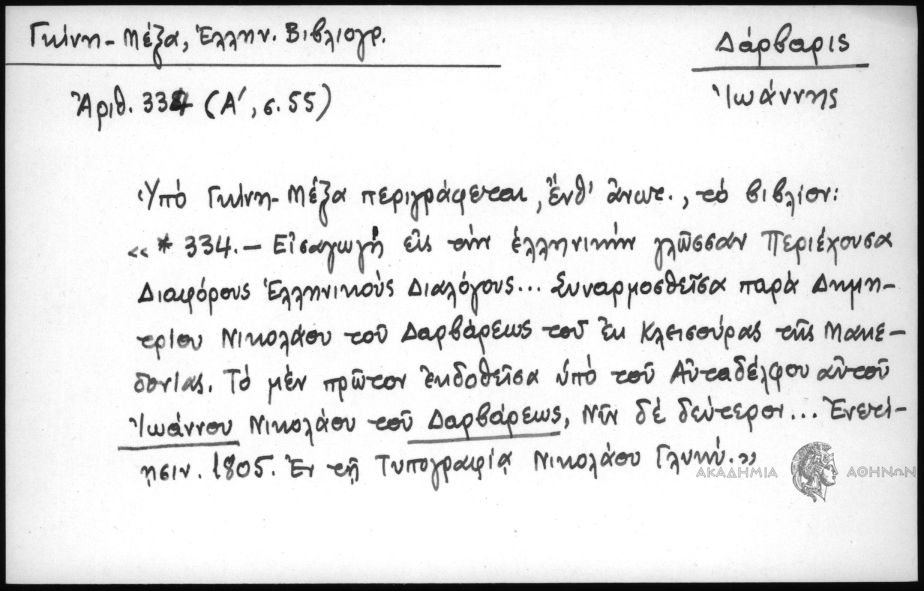 Γκίνη-Μέξα, Ἑλλην. Βιβλιογρ.
Δάρβαρις
Ἀριθ. 334 (Α', σ. 55)
Ἰωάννης
Ὑπό Γκίνη-Μέξα περιγράφεται, ἔνθ' ἄνωτ., τό βιβλίον:
«* 334.- Εἰσαγωγή εἰς τήν ἑλληνικήν γλῶσσαν Περιέχουσα
Διαφόρους Ἑλληνικούς Διαλόγους... Συναρμοσθεῖσα παρά Δημη-
τρίου Νικολάου τοῦ Δαρβάρεως τοῦ ἐκ Κλεισούρας τῆς Μακε-
δονίας. Τό μέν πρῶτον ἐκδοθεῖσα ὑπό τοῦ Αὐταδέλφου αὐτοῦ
Ἰωάννου Νικολάου τοῦ Δαρβάρεως, Νῦν δέ δεύτερον... Ἐνετί-
ῃσιν. 1805. Ἐν τῇ Τυπογραφίᾳ Νικολάου Γλυκύ.»
ΑΚΑΔΗΜΙΑ ΑΘΗΝΩΝ